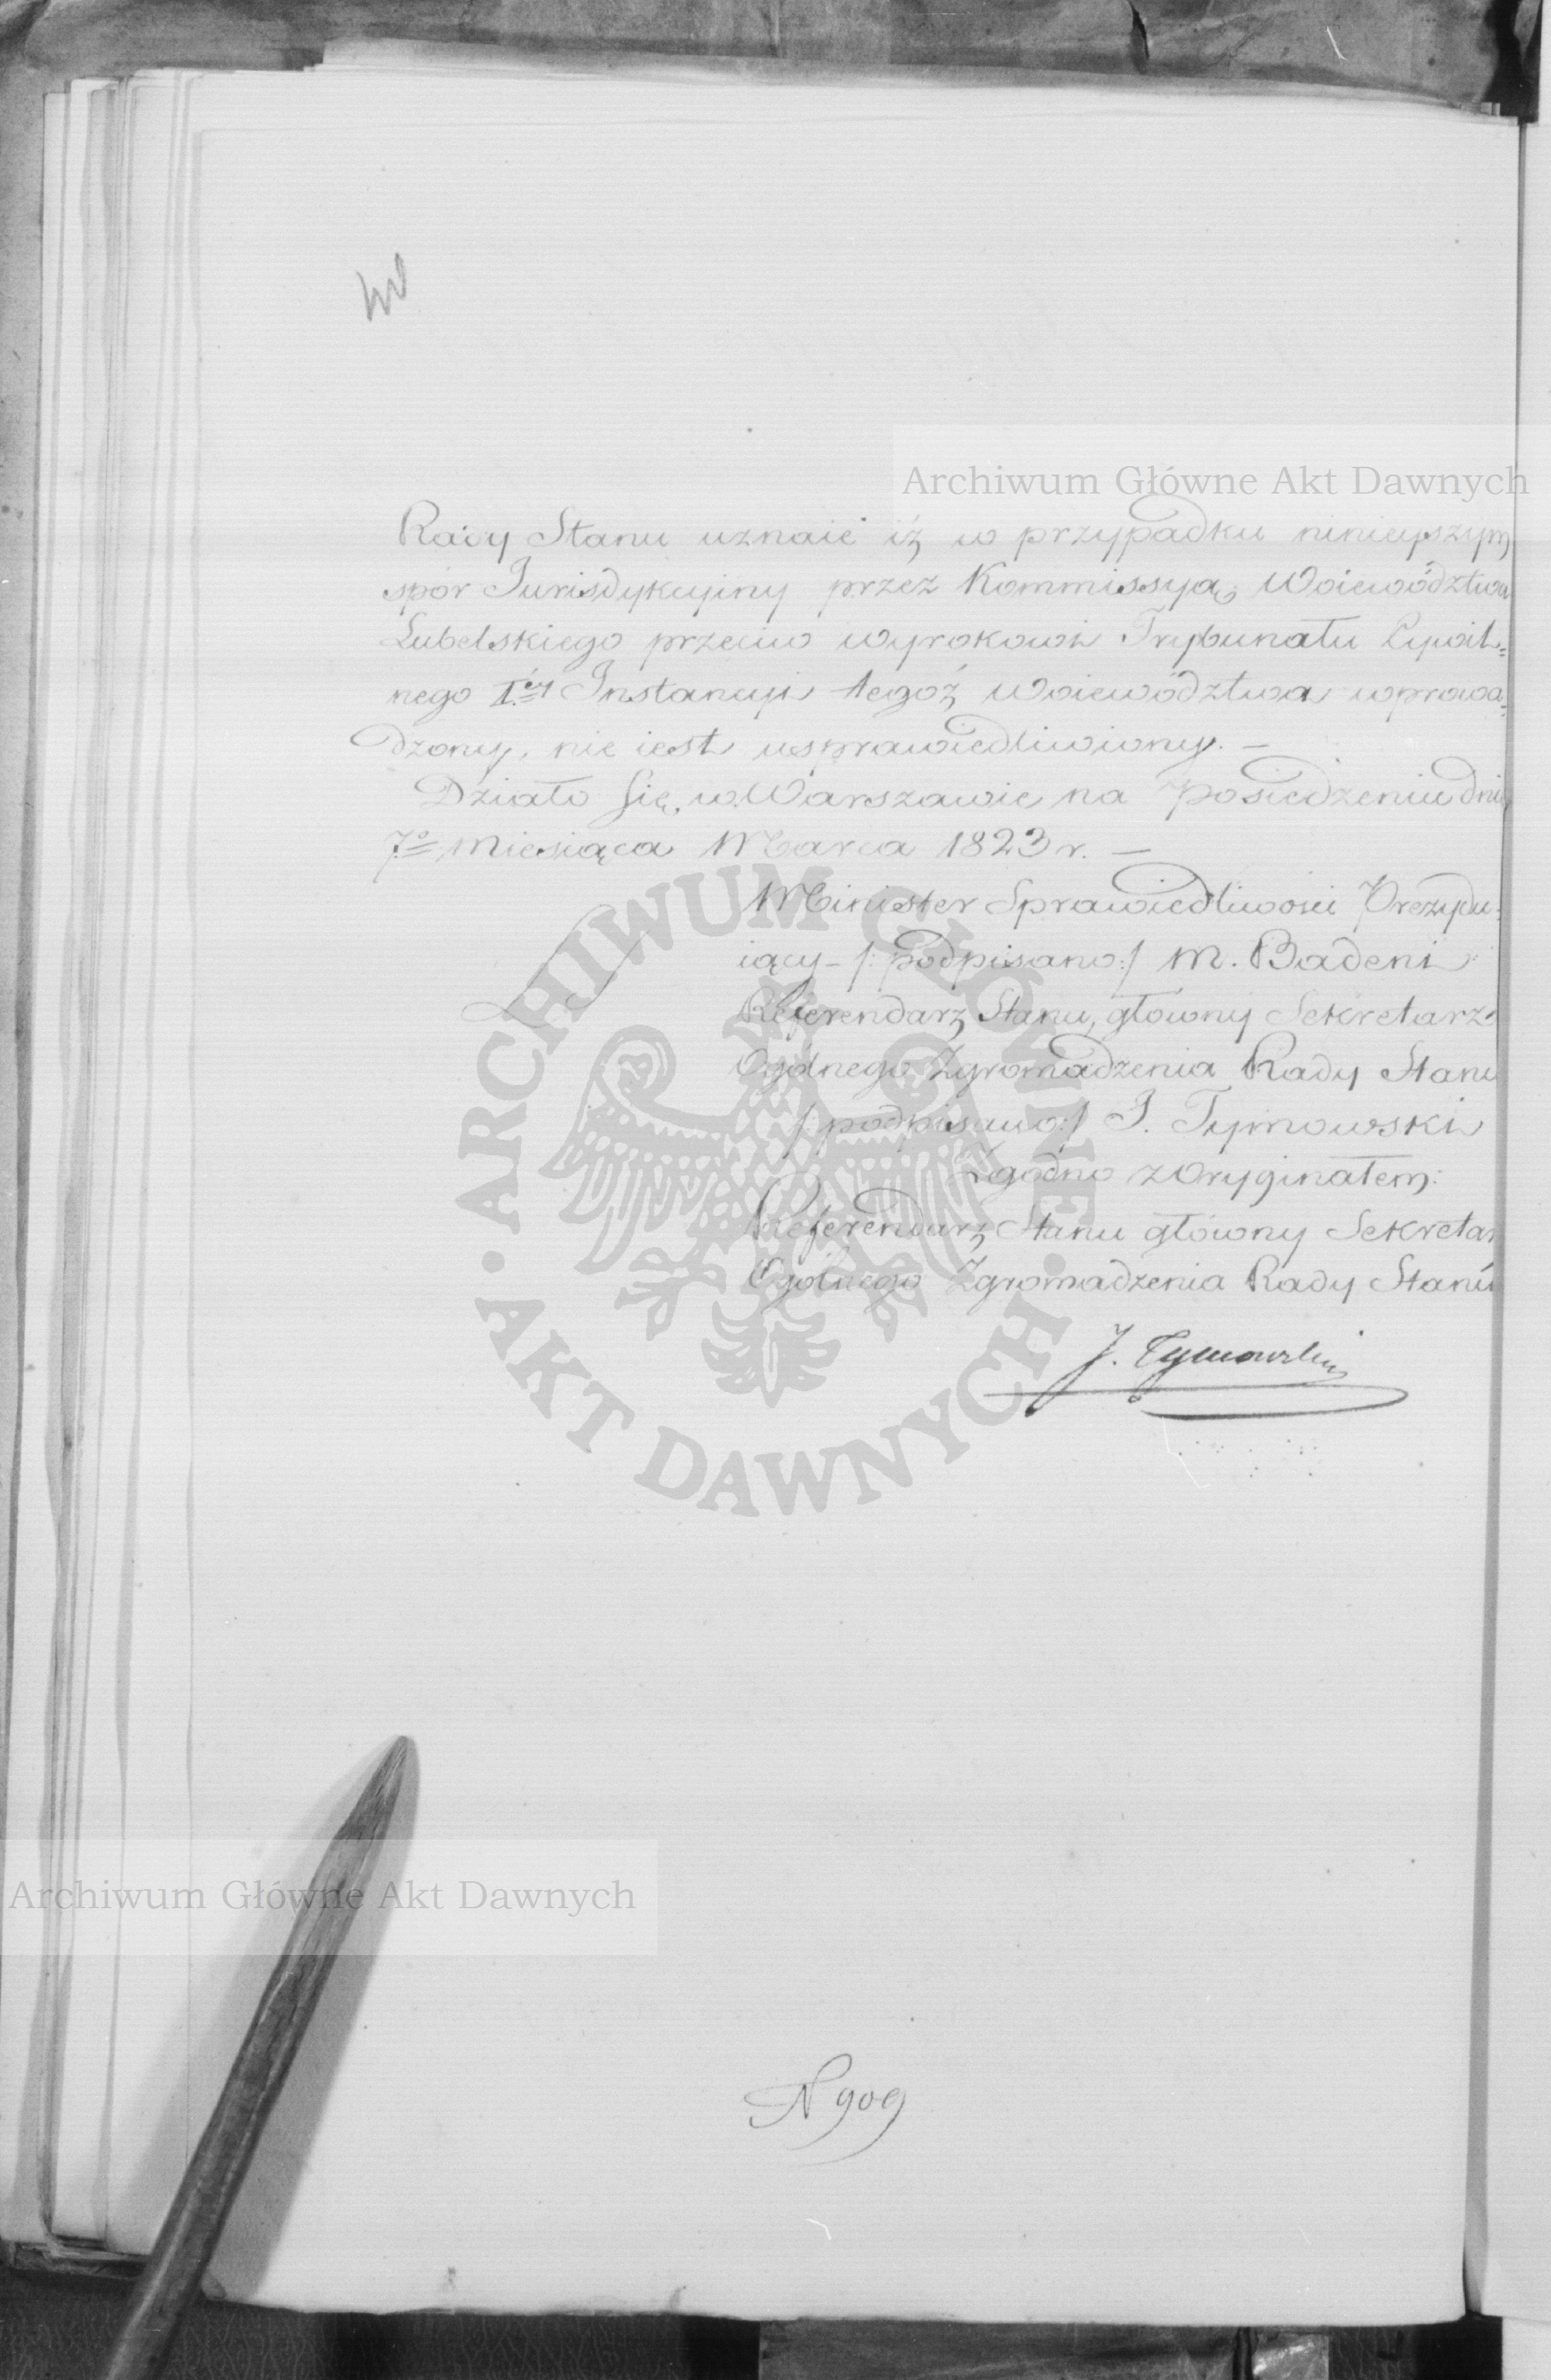 Archiwum Główne Akt Dawnych
Rady Stanu uznaie iż w przypadku ninieyszym
spór Jurisdykcyiny przez Kommissyą Woiewództwa
Lubelskiego przeciw wyrokowi Trybunału Cywil=
nego I.ey Instancyi tegoż Woiewództwa wprowa=
dzony, nie iest usprawiedliwiony. —
Działo się w Warszawie na Posiedzeniu dnia
7o miesiąca Marca 1823 r. —
Minister Sprawiedliwości Prezydu=
iący – /: podpisano :/ M. Badeni
Referendarz Stanu, główny Sekretarz
Ogólnego Zgromadzenia Rady Stanu
/: podpisano :/ J. Tymowski
Zgodno z Oryginałem:
Referendarz Stanu główny Sekretar
Ogólnego Zgromadzenia Rady Stanu
J. Tymowski
ARCHIWUM GŁÓWNE • AKT DAWNYCH •
Archiwum Główne Akt Dawnych
N 909